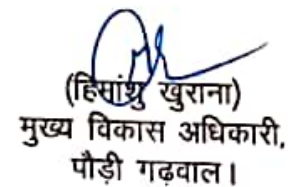 (हिमांशु खुराना)
मुख्य विकास अधिकारी,
पौड़ी गढ़वाल।